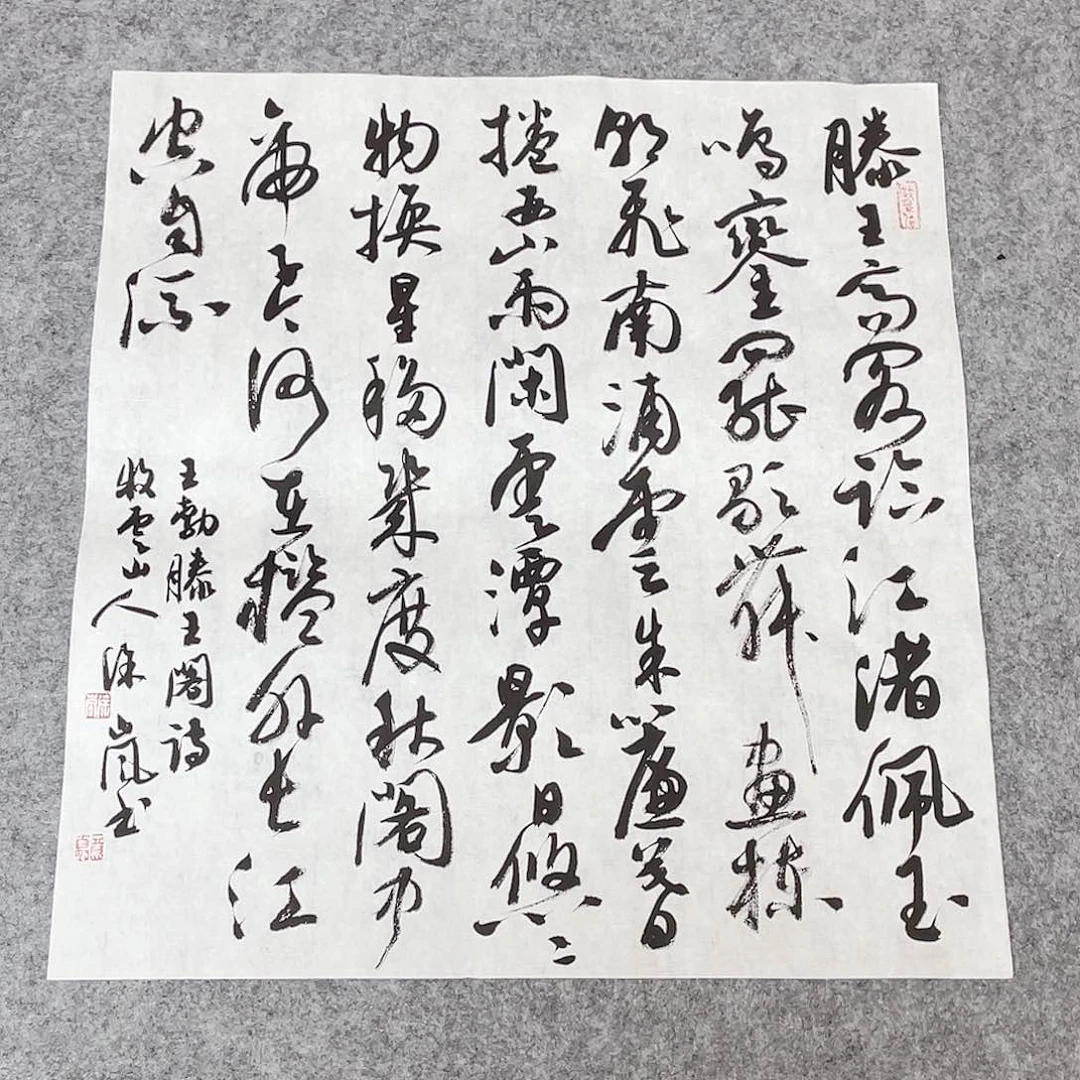 滕王高阁临江渚佩玉
鸣鸾罢歌舞画栋
朝飞南浦云朱帘暮
捲西山雨闲云潭影日悠々
物换星移几度秋阁中
帝子今何在槛外长江
空自流
王勃滕王阁诗
牧云山人徐岚书